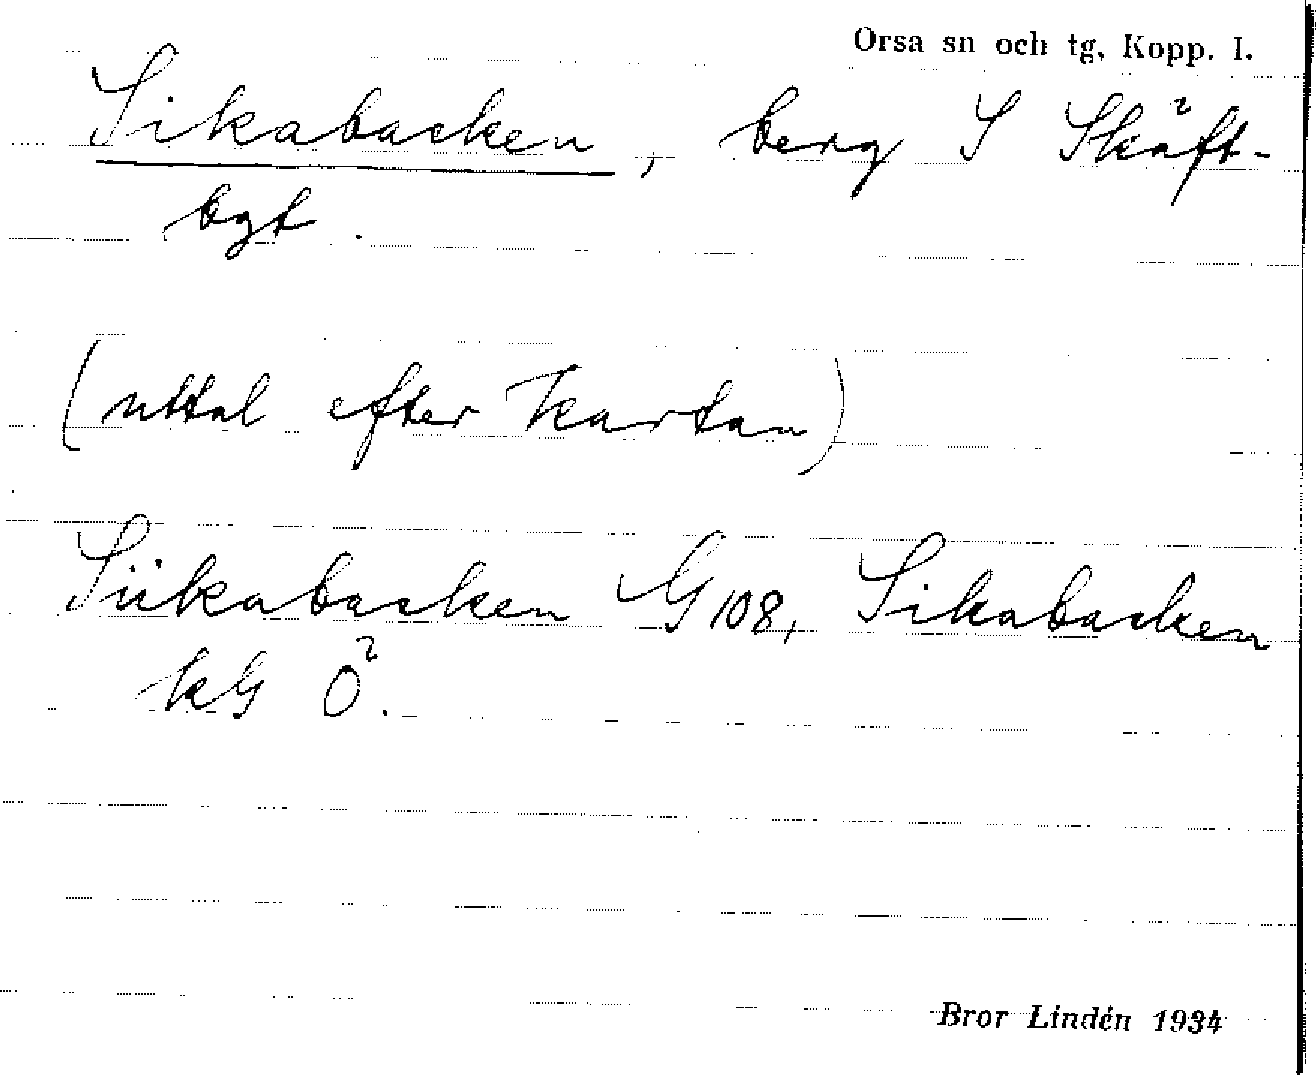 Orsa sn och tg, Kopp. l.
Sikabacken, berg S Skäft-
bgt.
(uttal efter kartan)
Siikabacken G 108, Sikabacken
kG Ö.
Bror Lindén 1934